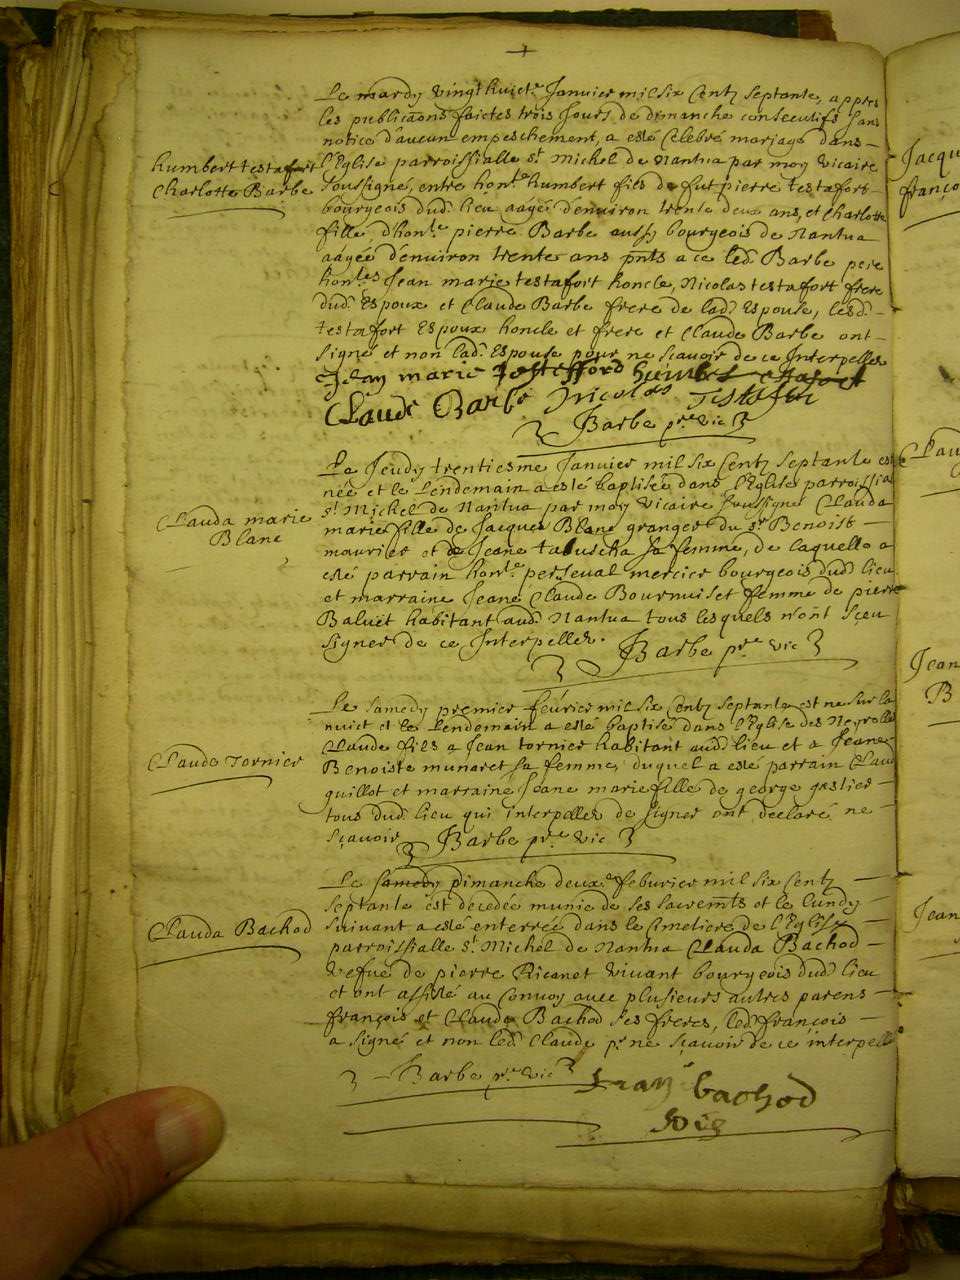 Le mardy vingt huict.e Janvier mil six Centz septante, appres
les publicãons faictes trois jours de dimanche consecutifs sans
notice d'aucun empeschement, a esté Celebré mariage dans
humbert testafort
Charlotte Barbe
l'Eglise parroissialle st Michel de Nantua par moy vicaire
soussigné, entre hon.le humbert fils de fut pierre testafort
bourgeois dud. lieu aagé d'environ trente deux ans, et Charlotte
fille d'hon.le pierre Barbe aussy bourgeois de Nantua
aagée d'environ trente ans pn̄ts a ce led. Barbe pere
hon.les Jean marie testafort honcle, Nicolas testafort frere
dud. Espoux et Claude Barbe frere de lad. Espouse, lesd.
testafort Espoux honcle et frere et Claude Barbe ont
signé et non lad. Espouse pour ne scavoir de ce Interpellee
Jean marie
Claude Barbe Nicolas
Barbe p.re vic
Le Jeudy trentiesme Janvier mil six Centz septante est
née et le Lendemain a esté baptisée dans l'Eglise parroissia
st Michel de Nantua par moy vicaire soussigné Clauda
Clauda marie
Blanc
marie fille de Jacques Blanc granger du sr Benoist
maurier et de Jeane sa femme, de laquelle a
esté parrain hon.le perseval mercier bourgeois dud. lieu
et marraine Jeane Claude femme de pierre
Baluet habitant aud. Nantua tous lesquels n'ont sceu
signer de ce Interpellez.
Barbe p.re vic
Le samedy premier février mil six Centz septante est né sur la
nuict et le Lendemain a esté baptisé dans l'Eglise des Neyrolles
Claude Tornier
Claude fils a Jean tornier habitant aud. lieu et a Jeane
Benoiste munaret sa femme, duquel a esté parrain Claud
quillot et marraine Jeane marie fille de george
tous dud. lieu qui interpellez de signer ont declaré ne
sçavoir Barbe p.re vic
Le samedy Dimanche deux.e feburier mil six Centz
septante est decedée munie de ses sacrem̄ts et le lundy
Clauda Bachod
suivant a esté enterrée dans le Cimetiere de l'Eglise
parroissialle st Michel de Nantua Clauda Bachod
vefue de pierre Ricanet vivant bourgeois dud. lieu
et ont assisté au Convoy avec plusieurs autres parens
françois et Claude Bachod ses freres, led. françois
a signé et non led. Claude p.r ne sçavoir de ce interpellé
Barbe p.re vic
bachod